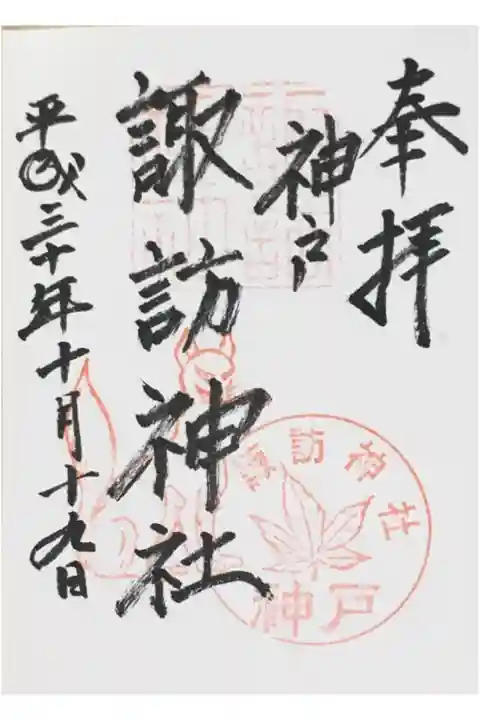 奉拝
神戸
諏訪神社
平成三十年十月十九日
諏訪神社
神戸